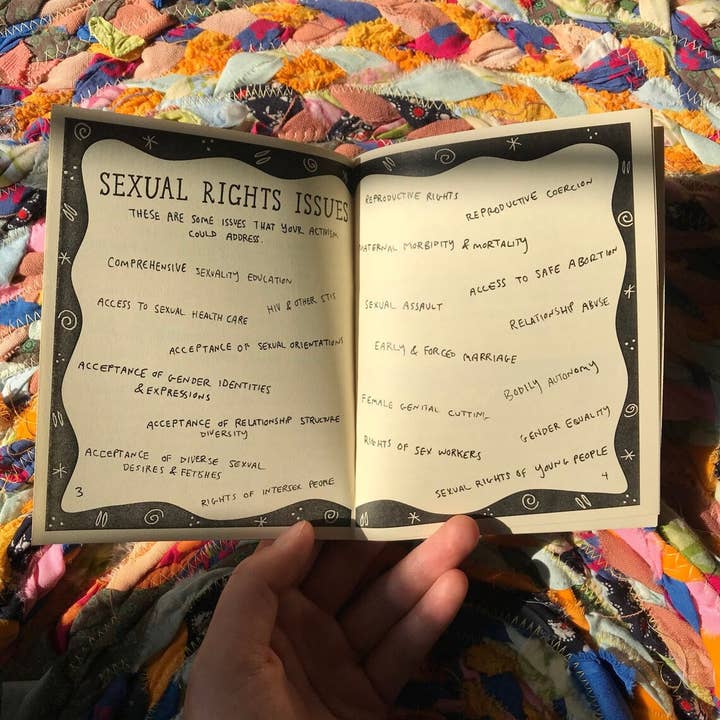 SEXUAL RIGHTS ISSUES
THESE ARE SOME ISSUES THAT YOUR ACTIVISM
COULD ADDRESS.
COMPREHENSIVE SEXUALITY EDUCATION
HIV & OTHER STIS
ACCESS TO SEXUAL HEALTH CARE
ACCEPTANCE OF SEXUAL ORIENTATIONS
ACCEPTANCE OF GENDER IDENTITIES
& EXPRESSIONS
ACCEPTANCE OF RELATIONSHIP STRUCTURE
DIVERSITY
ACCEPTANCE OF DIVERSE SEXUAL
DESIRES & FETISHES
RIGHTS OF INTERSEX PEOPLE
3
REPRODUCTIVE RIGHTS
REPRODUCTIVE COERCION
MATERNAL MORBIDITY & MORTALITY
ACCESS TO SAFE ABORTION
SEXUAL ASSAULT
RELATIONSHIP ABUSE
EARLY & FORCED MARRIAGE
BODILY AUTONOMY
FEMALE GENITAL CUTTING
GENDER EQUALITY
RIGHTS OF SEX WORKERS
SEXUAL RIGHTS OF YOUNG PEOPLE
4